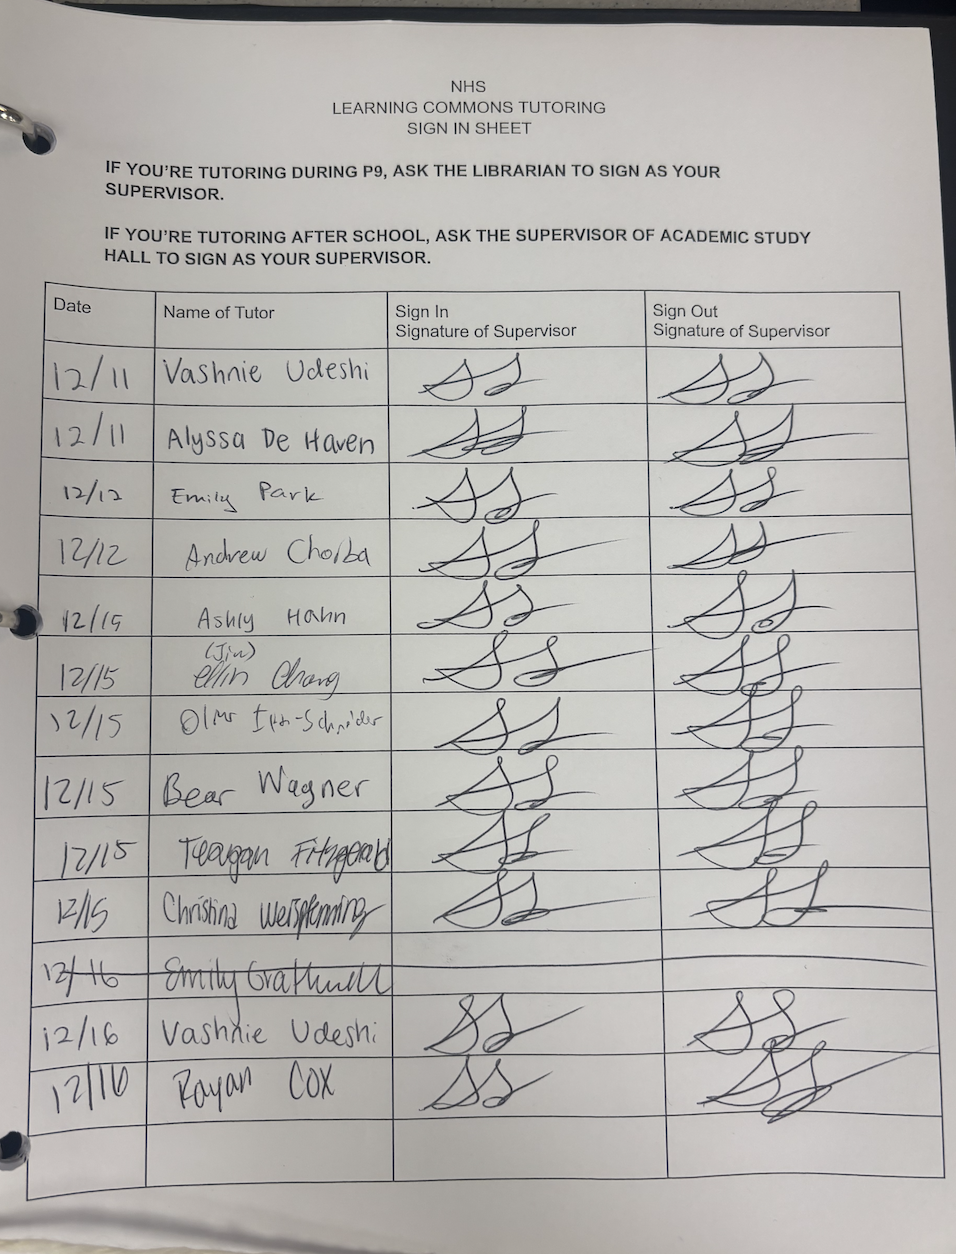 NHS
LEARNING COMMONS TUTORING
SIGN IN SHEET
IF YOU'RE TUTORING DURING P9, ASK THE LIBRARIAN TO SIGN AS YOUR
SUPERVISOR.
IF YOU'RE TUTORING AFTER SCHOOL, ASK THE SUPERVISOR OF ACADEMIC STUDY
HALL TO SIGN AS YOUR SUPERVISOR.
Date Name of Tutor Sign In Sign Out
Signature of Supervisor Signature of Supervisor
12/11 Vashnie Udeshi
12/11 Alyssa De Haven
12/12 Emily Park
12/12 Andrew Chorba
Ashly Hahn
(Jin)
12/15 Chang
12/15
12/15 Bear Wagner
12/15 Teagan Fitzgerald
12/15 Christina
12/16 Emily
12/16 Vashnie Udeshi
12/16 Rayan Cox